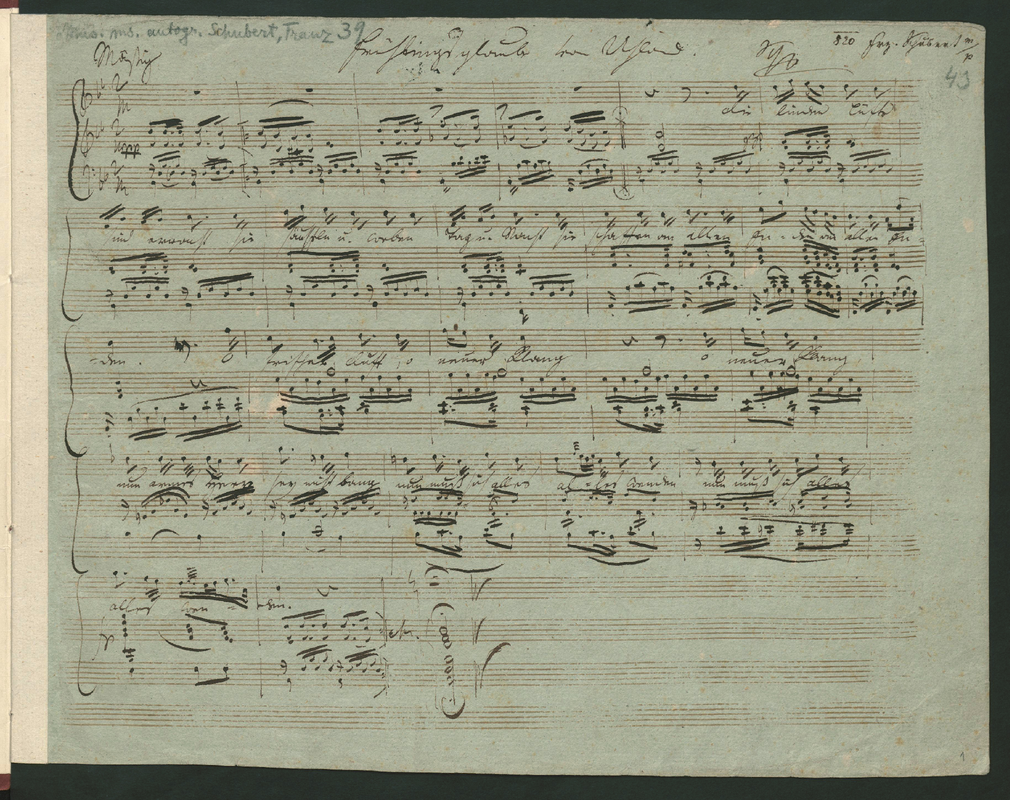 Mus. ms. autogr. Schubert, Franz 39
Frühlingsglaube von Uhland.
820 Frz. Schubert mp
43
Mäßig
pp
die linden Lüfte
sind erwacht sie säuseln u. weben Tag u. Nacht sie schaffen an allen En - den an allen En -
- den. o frischer Duft, o neuer Klang o neuer Klang
nun armes Herz sey nicht bang nun muß sich alles alles wenden nun muß sich alles
alles wen - den.
1